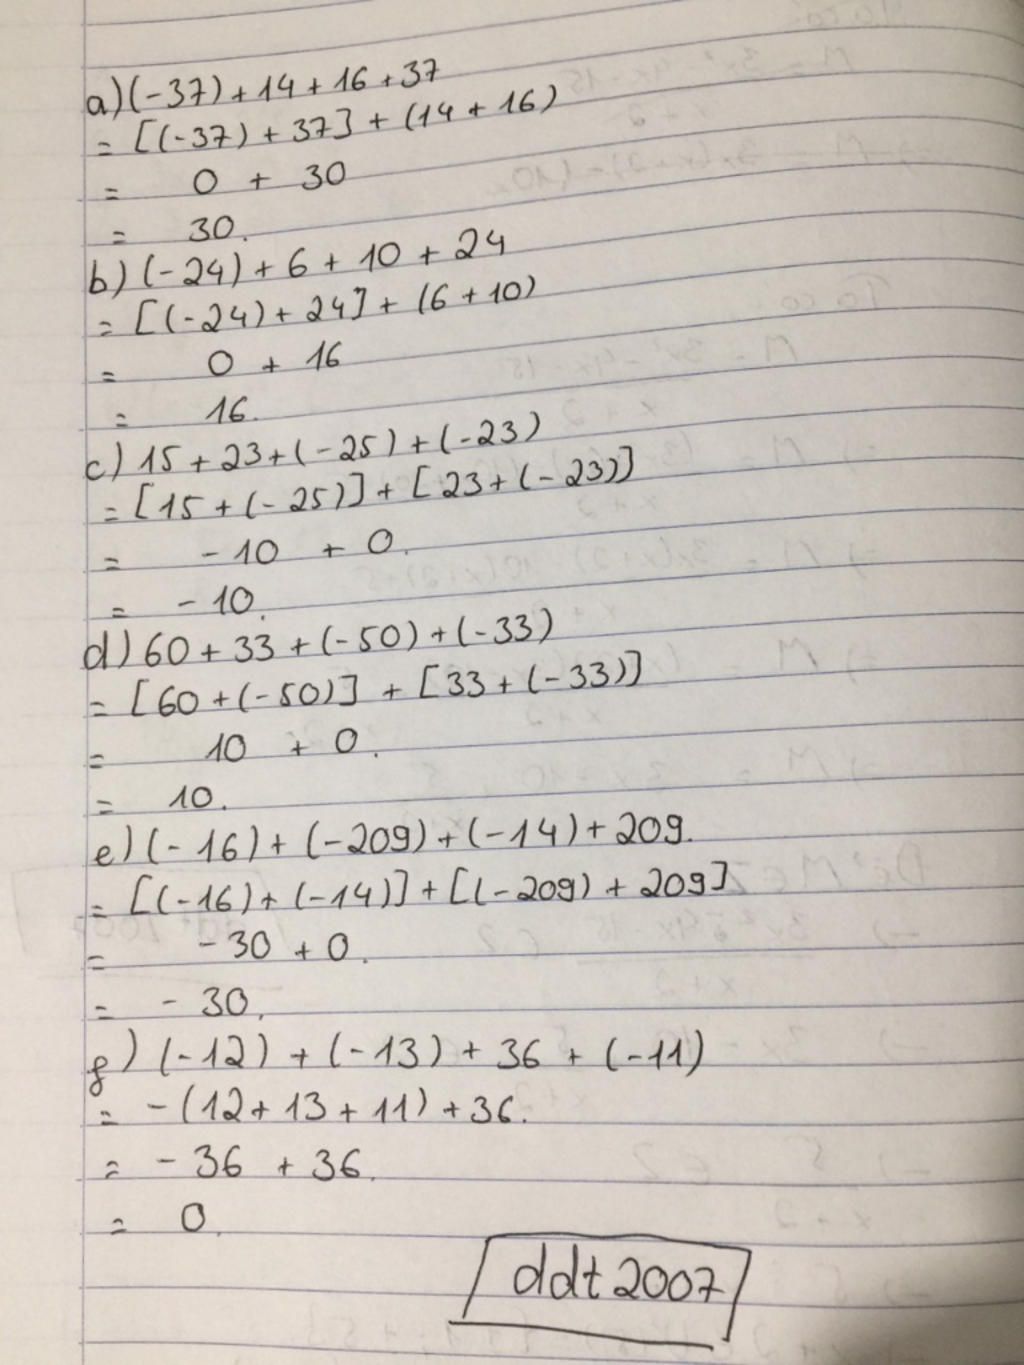 a) (-37) + 14 + 16 + 37
= [(-37) + 37] + (14 + 16)
= 0 + 30
= 30.
b) (-24) + 6 + 10 + 24
= [(-24) + 24] + (6 + 10)
= 0 + 16
= 16.
c) 15 + 23 + (-25) + (-23)
= [15 + (-25)] + [23 + (-23)]
= -10 + 0.
= -10.
d) 60 + 33 + (-50) + (-33)
= [60 + (-50)] + [33 + (-33)]
= 10 + 0.
= 10.
e) (-16) + (-209) + (-14) + 209.
= [(-16) + (-14)] + [(-209) + 209]
= -30 + 0.
= -30.
f) (-12) + (-13) + 36 + (-11)
= -(12 + 13 + 11) + 36.
= -36 + 36.
= 0.
ddt2007